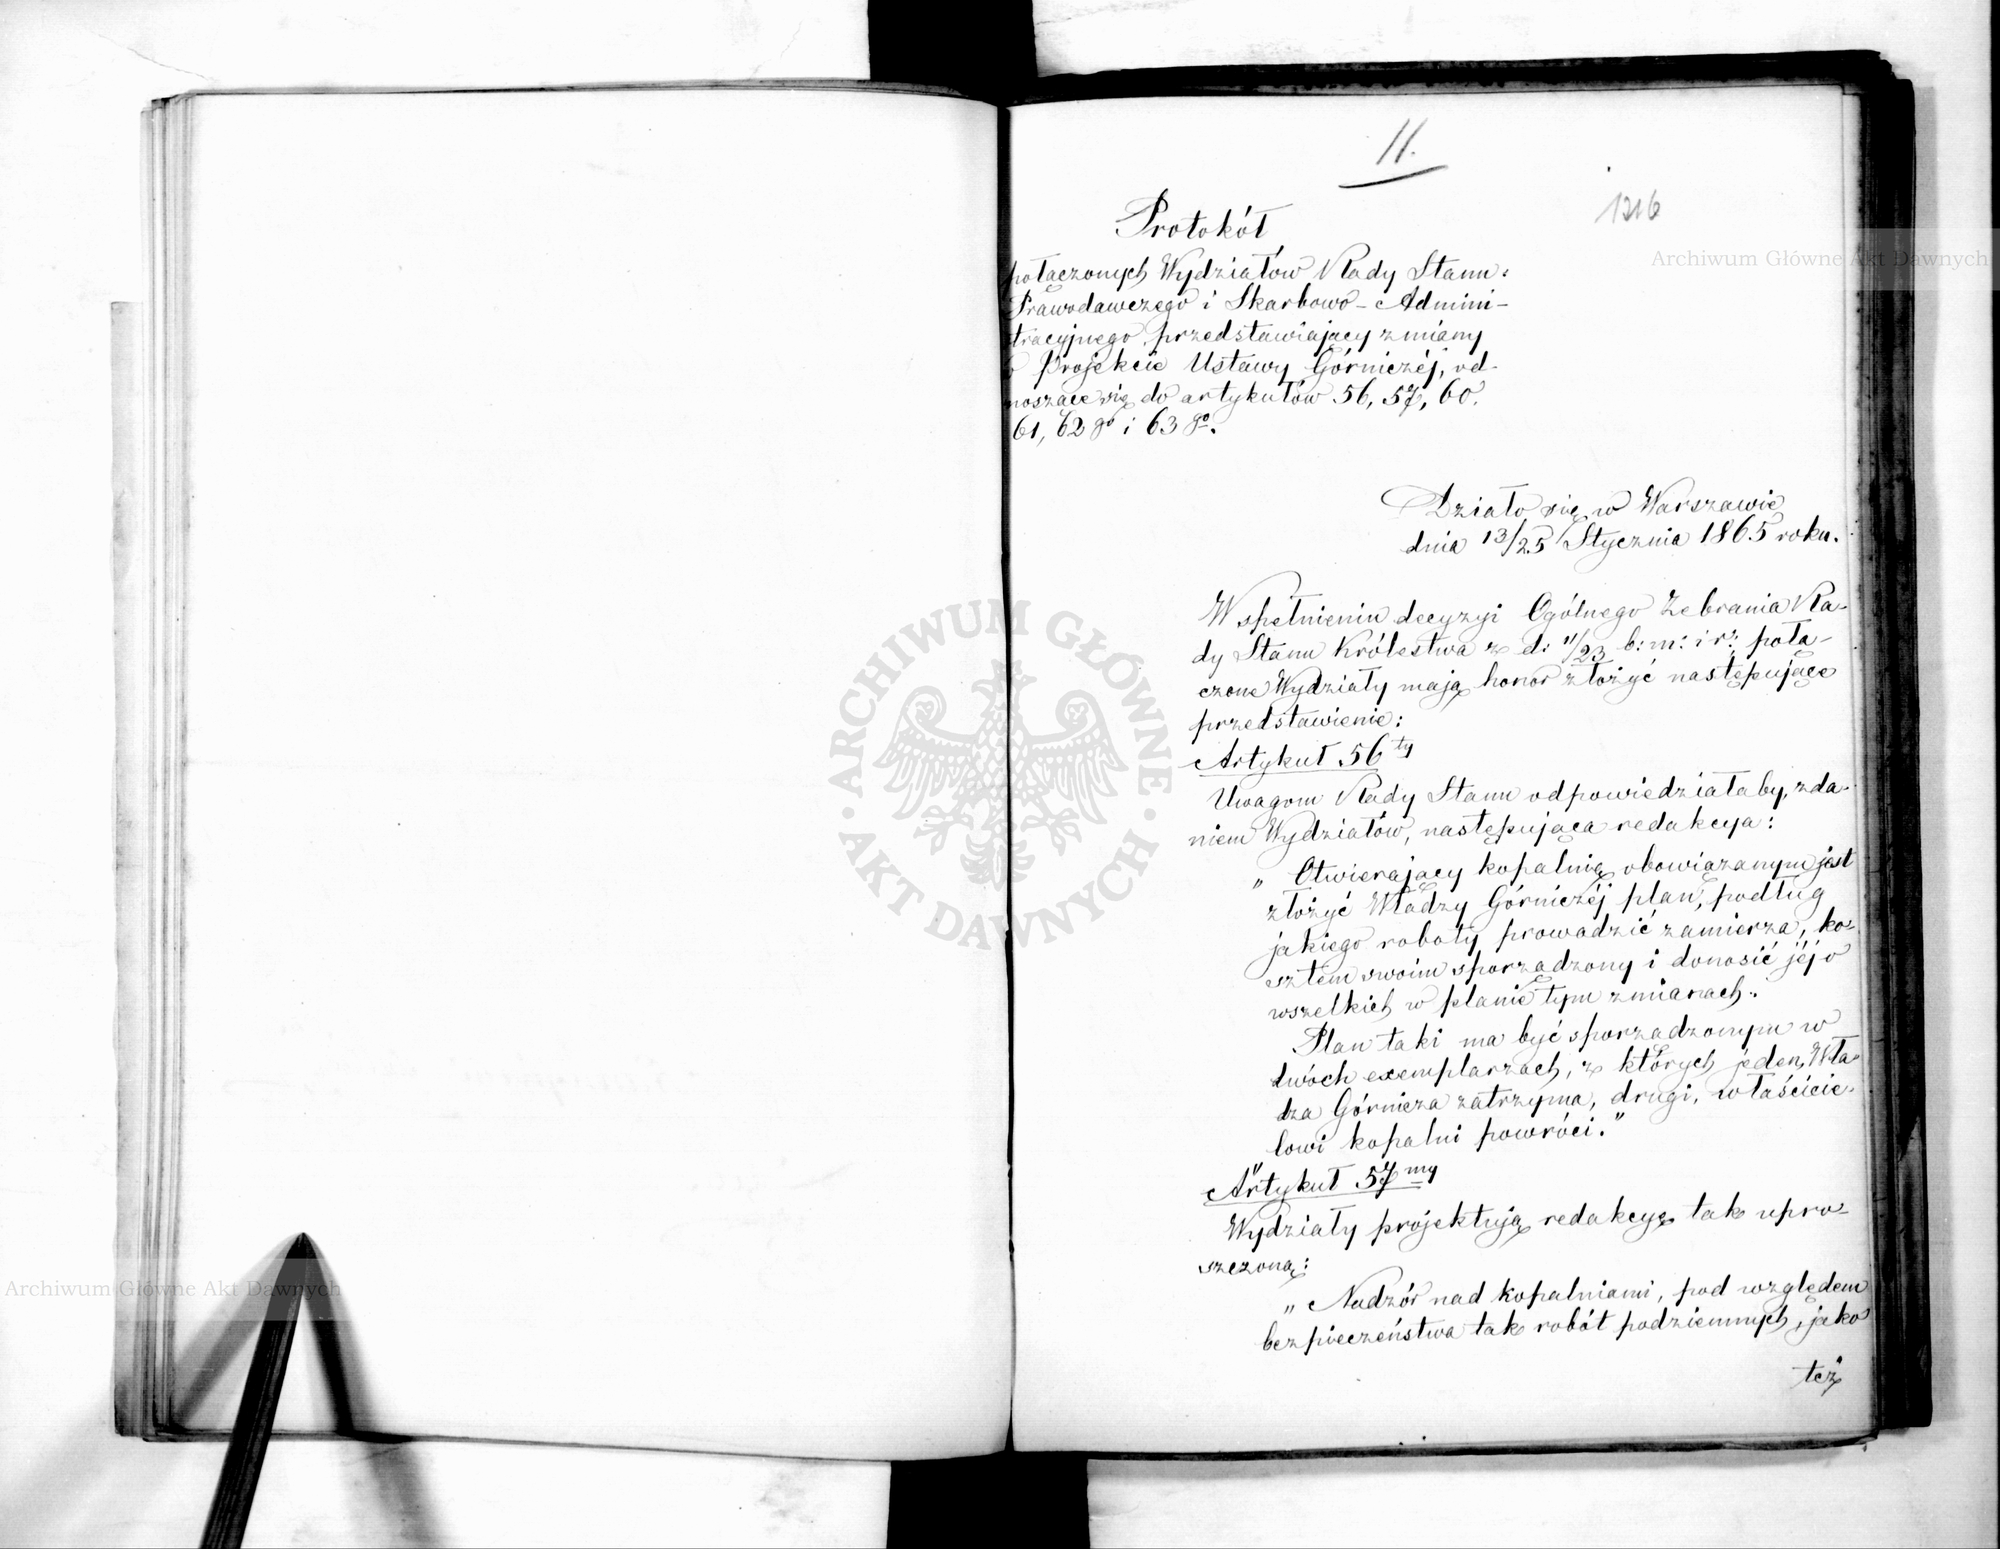 11.
1216
Protokół
połączonych Wydziałów Rady Stanu:
Prawodawczego i Skarbowo-Admini-
tracyjnego, przedstawiający zmiany
w Projekcie Ustawy Górniczéj, od-
noszące się do artykułów 56, 57, 60.
61, 62go i 63go.
Działo się w Warszawie
dnia 13/25 Stycznia 1865 roku.
W spełnieniu decyzyi Ogólnego Zebrania Ra-
dy Stanu Królestwa z d: 11/23 b: m: i r: połą-
czone Wydziały mają honor złożyć następujące
przedstawienie:
Artykuł 56ty
Uwagom Rady Stanu odpowiedziałaby, zda-
niem Wydziałów, następująca redakcya:
„Otwierający kopalnię, obowiązanym jest
złożyć Władzy Górniczéj plan, podług
jakiego roboty prowadzić zamierza, ko-
sztem swoim sporządzony i donosić jéj o
wszelkich w planie tym zmianach.
Plan taki ma być sporządzonym w
dwóch exemplarzach, z których jeden, Wła-
dza Górnicza zatrzyma, drugi, właścicie-
lowi kopalni powróci."
Artykuł 57my
Wydziały projektują redakcyę tak upro-
szczoną:
„Nadzór nad kopalniami, pod względem
bezpieczeństwa tak robót podziemnych, jako
też
Archiwum Główne Akt Dawnych
ARCHIWUM GŁÓWNE · AKT DAWNYCH ·
Archiwum Główne Akt Dawnych